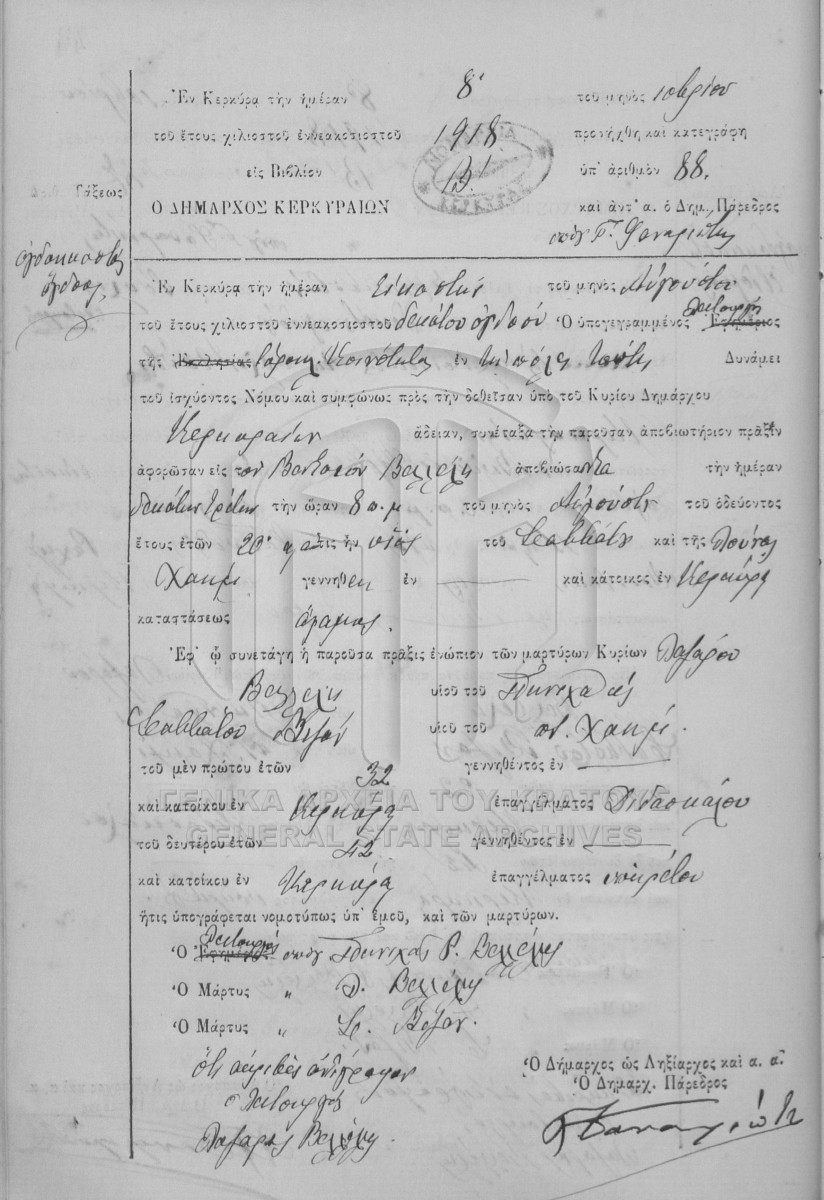 Ἐν Κερκύρᾳ τὴν ἡμέραν 8' τοῦ μηνὸς 10βρίου
τοῦ ἔτους χιλιοστοῦ ἐννεακοσιοστοῦ 1918 προνήχθη καὶ κατεγράφη
εἰς Βιβλίον Β' ὑπ' ἀριθμὸν 88.
Ο ΔΗΜΑΡΧΟΣ ΚΕΡΚΥΡΑΙΩΝ καὶ ἀντ' α. ὁ Δημ. Πάρεδρος
Τάξεως
ὀγδοηκοστὸς
ὄγδοος
Ἐν Κερκύρᾳ τὴν ἡμέραν Εἰκοστὴν τοῦ μηνὸς Αὐγούστου
τοῦ ἔτους χιλιοστοῦ ἐννεακοσιοστοῦ δεκάτου ὀγδόου Ὁ ὑπογεγραμμένος Λειτουργὸς Ἐφημέριος
τῆς Ἐκκλησίας Ἰσραηλ. Κοινότητος ἐν τῇ πόλει ταύτῃ Δυνάμει
τοῦ ἰσχύοντος Νόμου καὶ συμφώνως πρὸς τὴν δοθεῖσαν ὑπὸ τοῦ Κυρίου Δημάρχου
Κερκυραίων ἄδειαν, συνέταξα τὴν παροῦσαν ἀποβιωτήριον πρᾶξιν
ἀφορῶσαν εἰς τὸν Βελλέλη ἀποβιώσαντα τὴν ἡμέραν
δεκάτην τρίτην τὴν ὥραν 8 π.μ τοῦ μηνὸς Αὐγούστου τοῦ ὁδεύοντος
ἔτους ἐτῶν 20 υἱὸς τοῦ Σαββάτου καὶ τῆς
Χαΐμ γεννηθεν ἐν — καὶ κάτοικος ἐν Κερκύρᾳ
καταστάσεως ἄγαμος.
Ἐφ' ᾧ συνετάγη ἡ παροῦσα πρᾶξις ἐνώπιον τῶν μαρτύρων Κυρίων Λαζάρου
Βελλέλη υἱοῦ τοῦ Πινχας
Σαββάτου Βιβάν υἱοῦ τοῦ
τοῦ μὲν πρώτου ἐτῶν 32 γεννηθέντος ἐν —
καὶ κατοίκου ἐν Κερκύρᾳ ἐπαγγέλματος Διδασκάλου
τοῦ δευτέρου ἐτῶν 42 γεννηθέντος ἐν —
καὶ κατοίκου ἐν Κερκύρᾳ ἐπαγγέλματος ὑπηρέτου
ἥτις ὑπογράφεται νομοτύπως ὑπ' ἐμοῦ, καὶ τῶν μαρτύρων.
Ὁ Λειτουργὸς Ἐφημέριος Βελλέλης
Ὁ Μάρτυς „ Λ. Βελλέλης
Ὁ Μάρτυς „ Σ. Βιβάν.
Ὅτι ἀκριβὲς ἀντίγραφον
ὁ Λειτουργὸς
Λάζαρος Βελλέλης.
Ὁ Δήμαρχος ὡς Ληξίαρχος καὶ α. α
Ὁ Δημαρχ. Πάρεδρος
ΓΕΝΙΚΑ ΑΡΧΕΙΑ ΤΟΥ ΚΡΑΤΟΥΣ
GENERAL STATE ARCHIVES